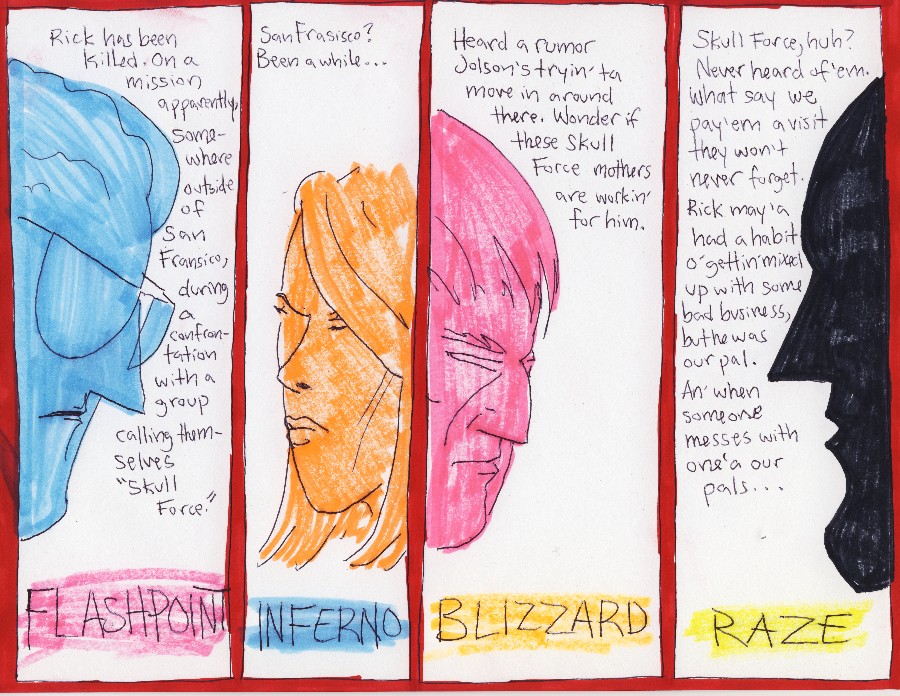 Rick has been
killed. On a
mission
apparently,
some-
where
outside
of
San
Fransico,
during
a
confron-
tation
with a
group
calling them-
selves
"Skull
Force."
FLASHPOINT
San Frasisco?
Been a while...
INFERNO
Heard a rumor
Jolson's tryin' ta
move in around
there. Wonder if
these Skull
Force mothers
are workin'
for him.
BLIZZARD
Skull Force, huh?
Never heard of 'em.
What say we
pay 'em a visit
they won't
never forget.
Rick may'a
had a habit
o' gettin' mixed
up with some
bad business,
but he was
our pal.
An' when
someone
messes with
one'a our
pals...
RAZE